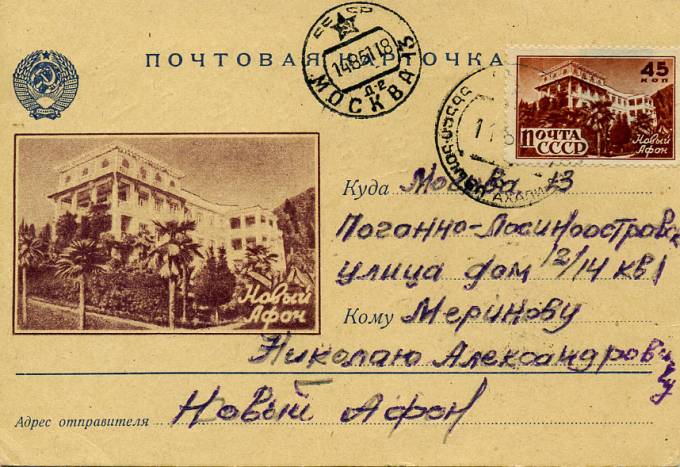 ПОЧТОВАЯ КАРТОЧКА
СССР
14851.18
Д-2
МОСКВА
45
КОП
ПОЧТА
СССР
Новый
Афон
Куда Москва 13
Поганно-Лосиноостровск
улица дом 12/14 кв 1
Кому Меринову
Николаю Александрович
у
Новый
Афон
Адрес отправителя Новый Афон